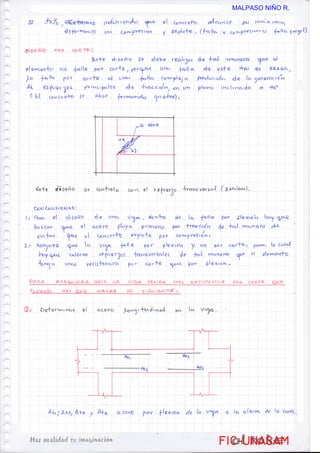 MALPASO NIÑO R.
el concreto alcance su máxima
deformación en compresión y explote, (falla x compresión o falla frágil)
DISEÑO POR CORTE:
Este diseño se debe realizar de tal manera que el
elemento no falle por corte, porque una falla de este tipo es
la falla por corte es una falla compleja producida de la generación
de esfuerzos principales de tracción, en un plano inclinado a 45°
(El concreto se abre formando grietas).
se abre
Este diseño se controla con el refuerzo transversal (Estribos).
CONCLUSIONES:
1) Para el diseño de una viga, dentro de la falla por flexión hay que
buscar que el acero fluya primero por tracción de tal manera de
evitar que el concreto explote por compresión.
2) Asegurar que la viga falle por flexión y no por corte; para lo cual
hay que colocar refuerzos transversales de tal manera que el elemento
tenga una resistencia por corte que por flexión.
PARA ASEGURAR QUE LA VIGA TENGA MAS RESISTENCIA POR CORTE QUE
FLEXIÓN HAY QUE HACER LO SIGUIENTE:
Determinar el acero longitudinal en la viga.
acero por flexión de la viga a la altura de la cara
Haz realidad tu imaginación
FIC-UNASAM